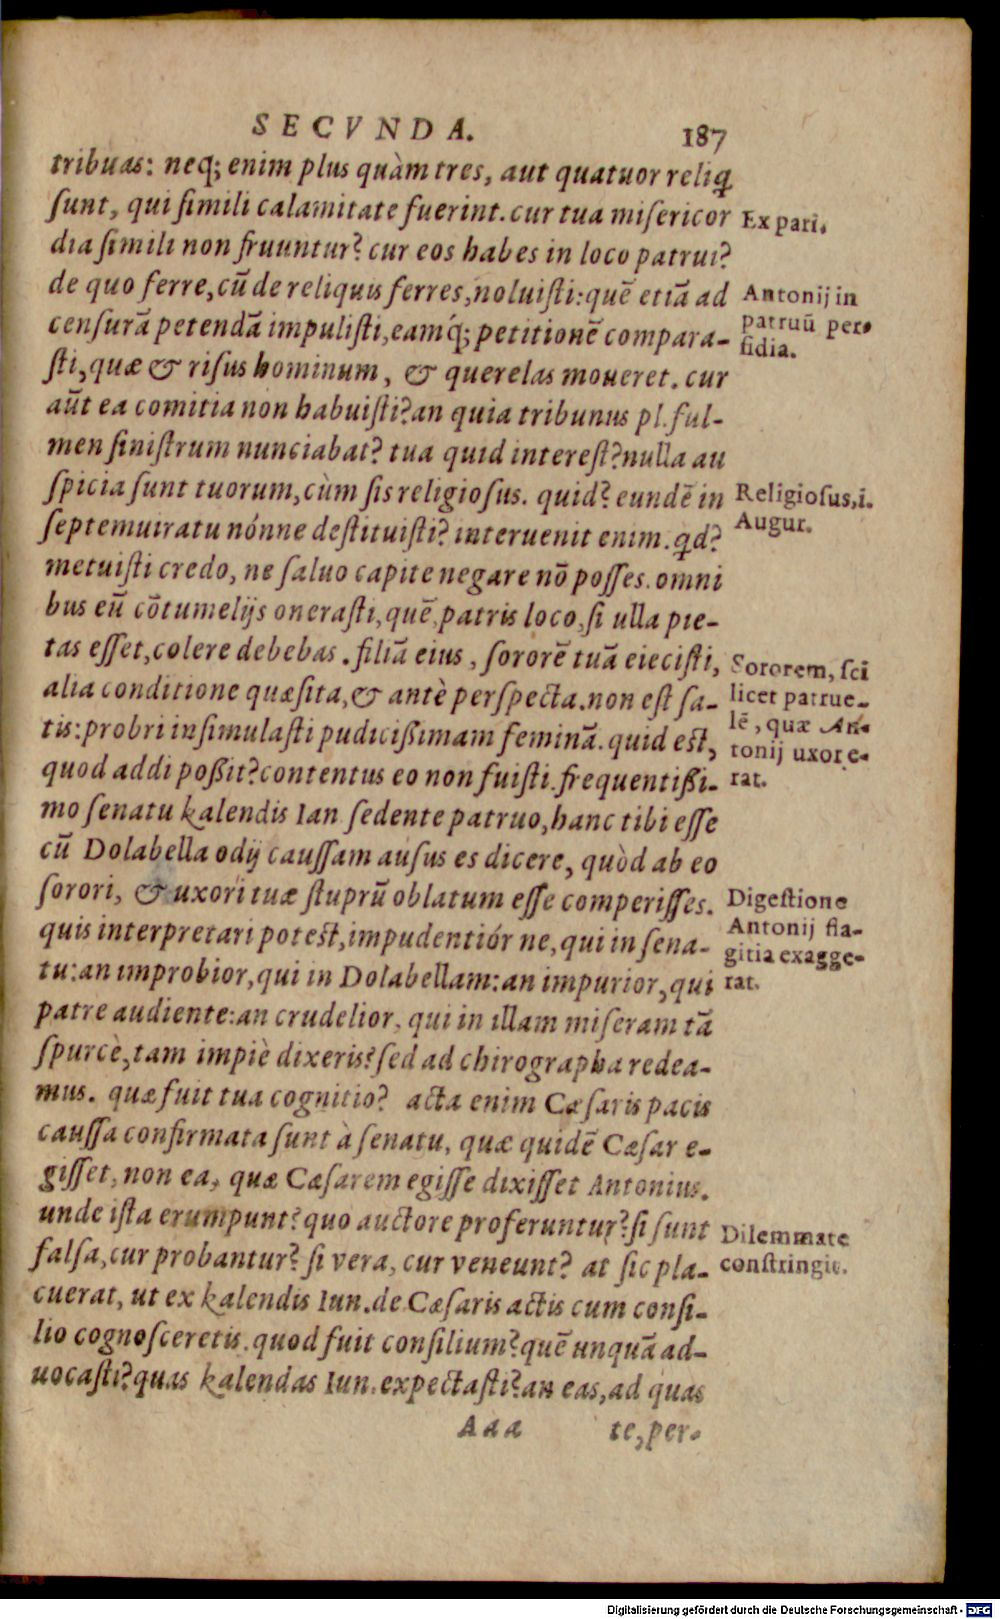 SECVNDA. 187
tribuas: neq; enim plus quàm tres, aut quatuor reliq
ſunt, qui ſimili calamitate fuerint. cur tua miſericor
dia ſimili non fruuntur? cur eos habes in loco patrui?
de quo ferre, cū de reliquis ferres, noluiſti: quē etiā ad
cenſurā petendā impuliſti, eamq́; petitionē compara-
ſti, quæ & riſus hominum, & querelas moueret. cur
aūt ea comitia non habuiſti? an quia tribunus pl. ful-
men ſiniſtrum nunciabat? tua quid intereſt? nulla au
ſpicia ſunt tuorum, cùm ſis religioſus. quid? eundē in
ſeptemuiratu nónne deſtituiſti? interuenit enim. qd?
metuiſti credo, ne ſaluo capite negare nō poſſes. omni
bus eū cōtumelijs oneraſti, quē, patris loco, ſi ulla pie-
tas eſſet, colere debebas. filiā eius, ſororē tuā eieciſti,
alia conditione quæſita, & antè perſpecta. non eſt ſa-
tis: probri inſimulaſti pudiciſſimam feminā. quid eſt,
quod addi poſſit? contentus eo non fuiſti. frequentiſſi-
mo ſenatu kalendis Ian ſedente patruo, hanc tibi eſſe
cū Dolabella odij cauſſam auſus es dicere, quòd ab eo
ſorori, & uxori tuæ ſtuprū oblatum eſſe comperiſſes.
quis interpretari poteſt, impudentiór ne, qui in ſena-
tu: an improbior, qui in Dolabellam: an impurior, qui
patre audiente: an crudelior, qui in illam miſeram tā
ſpurcè, tam impiè dixeris? ſed ad chirographa redea-
mus. quæ fuit tua cognitio? acta enim Cæſaris pacis
cauſſa confirmata ſunt à ſenatu, quæ quidē Cæſar e-
giſſet, non ea, quæ Cæſarem egiſſe dixiſſet Antonius.
unde iſta erumpunt? quo auctore proferuntur? ſi ſunt
falſa, cur probantur? ſi vera, cur veneunt? at ſic pla-
cuerat, ut ex kalendis Iun. de Cæſaris actis cum conſi-
lio cognoſceretis. quod fuit conſilium? quē unquā ad-
uocaſti? quas kalendas Iun. expectaſti? an eas, ad quas
Aaa te, per-
Ex pari.
Antonij in
patruū per-
fidia.
Religioſus, i.
Augur.
Sororem, ſci
licet patrue-
lē, quæ An-
tonij uxor e-
rat.
Digeſtione
Antonij fla-
gitia exagge-
rat.
Dilemmate
conſtringit.
Digitalisierung gefördert durch die Deutsche Forschungsgemeinschaft - DFG